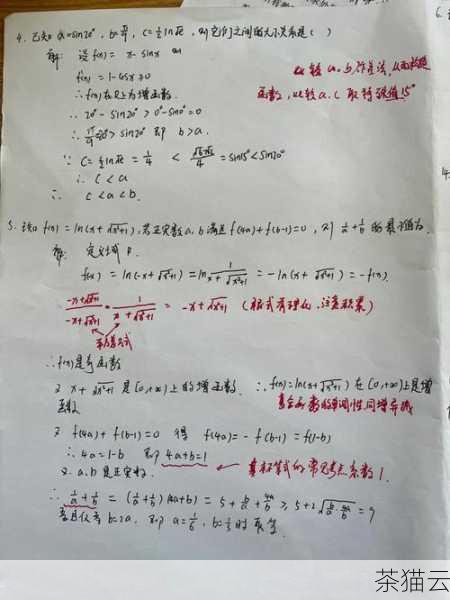 4. 已知 a=sin20°, b=π/9, c=½ln√e, 则它们之间的大小关系是( )
解: 设 f(x) = x-sinx
f'(x) = 1-cosx≥0
比较 a、b 作差法,从而构造
∴f(x)在R上为增函数.
函数,比较 a、c 取特殊值15°
∴ 20°-sin20° > 0°-sin0°=0
∴ π/9 > sin20° 即 b>a.
∵ C=½ln√e=¼ < (√6-√2)/4 =sin15°<sin20°
∴ c<a
∴ c<a<b.
5. f(x) = ln(x+√x²+1), 若正实数a,b满足 f(4a)+f(b-1)=0, 则 1/a+1/b 的最小值为
解: 定义域 R.
f(-x) = ln(-x+√x²+1) = ln 1/(x+√x²+1) = -ln(x+√x²+1) = -f(x).
(-x+√x²+1)/(-x+√x²+1) · 1/(x+√x²+1) = -x+√x²+1 (根式有理化,注意积累)
平方差公式
∴f(x)是奇函数
又 x+√x²+1 是[0,+∞)上的增函数. ∴f(x)=ln(x+√x²+1) 在[0,+∞)上是增
函数
复合函数的单调性,同增异减
又 f(4a)+f(b-1)=0 得 f(4a)=-f(b-1)=f(1-b)
∴4a=1-b 即 4a+b=1
又 a,b是正实数.
∴ 1/a+1/b = (1/a+1/b)(4a+b) = 5+b/a+4a/b ≥ 5+2√(b/a·4a/b) =9
当且仅当 b=2a, 即 a=1/6, b=1/3时取等
茶猫云